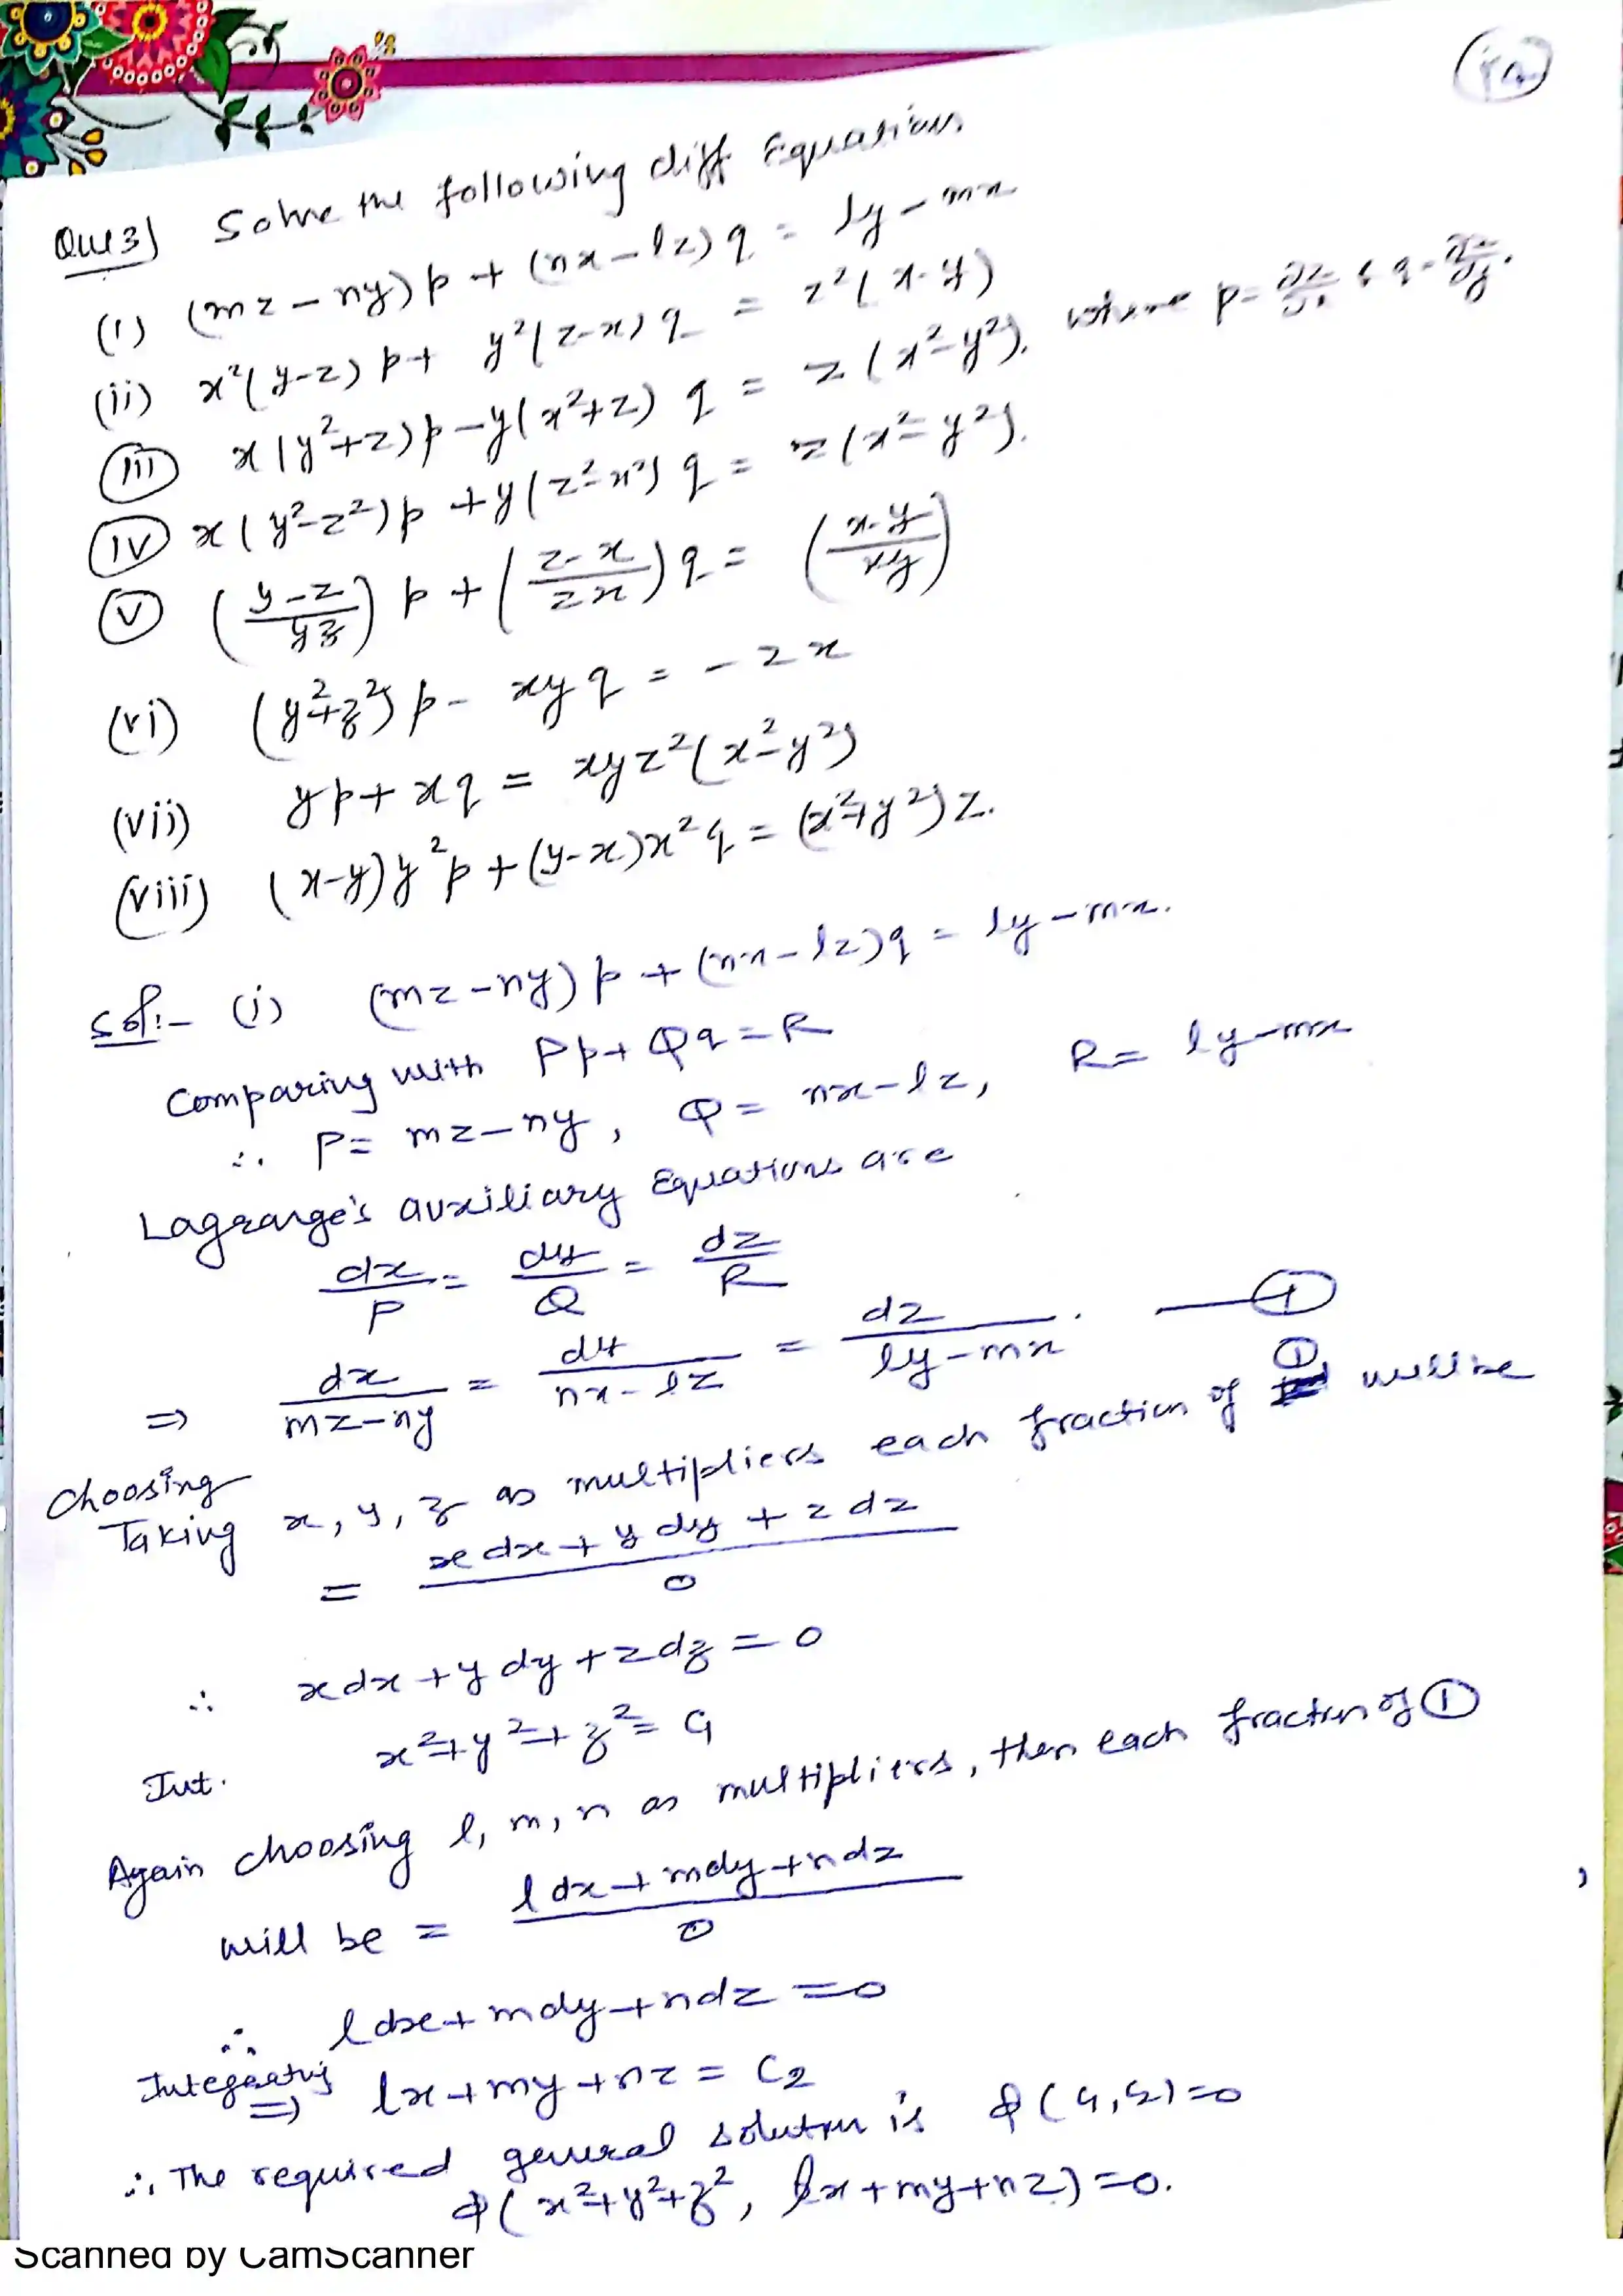 Que 3) Solve the following diff Equations
(i) (mz – ny) p + (nx – lz) q = ly – mx
(ii) x²(y-z) p + y²(z-x) q = z²(x-y)
(iii) x(y²+z)p – y(x²+z) q = z(x²-y²). where p = ∂z/∂x & q = ∂z/∂y.
(iv) x(y²-z²)p + y(z²-x²) q = z(x²-y²).
(v) ((y-z)/yz) p + ((z-x)/zx) q = ((x-y)/xy)
(vi) (y²+z²)p – xy q = – zx
(vii) yp + xq = xyz²(x²-y²)
(viii) (x-y)y²p + (y-x)x²q = (x²+y²)z.
Sol:- (i) (mz – ny) p + (nx – lz) q = ly – mx.
Comparing with Pp + Qq = R
∴ P = mz – ny, Q = nx – lz, R = ly – mx
Lagrange's auxiliary Equations are
dx/P = dy/Q = dz/R
⇒ dx/(mz–ny) = dy/(nx–lz) = dz/(ly–mx). — ①
Choosing
Taking x, y, z as multipliers each fraction of ① will be
= (x dx + y dy + z dz)/0
∴ x dx + y dy + z dz = 0
Int. x² + y² + z² = C₁
Again choosing l, m, n as multipliers, then each fraction of ①
will be = (l dx + m dy + n dz)/0
∴ l dx + m dy + n dz = 0
Integrating ⇒ lx + my + nz = C₂
∴ The required general solution is ϕ(C₁, C₂) = 0
ϕ(x²+y²+z², lx + my + nz) = 0.
Scanned by CamScanner